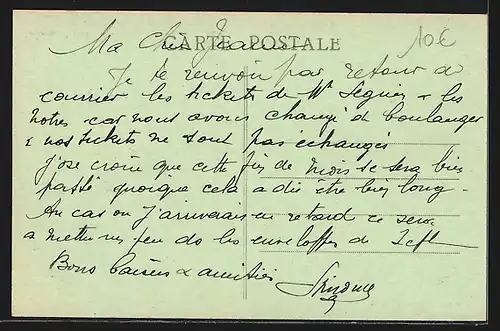 CARTE POSTALE
10€
Ma Chère
Je te renvoie par retour de
courrier les tickets de Mr Seguier & les
notres car nous avons changé de boulanger
& nos tickets ne sont pas échangés
J'ose croire que cette fin de mois se sera bien
passé quoique cela a dû être bien long -
Au cas où j'arriverais en retard ce sera
à mettre un peu de les enveloppes de
Bons baisers & amitiés
Simone